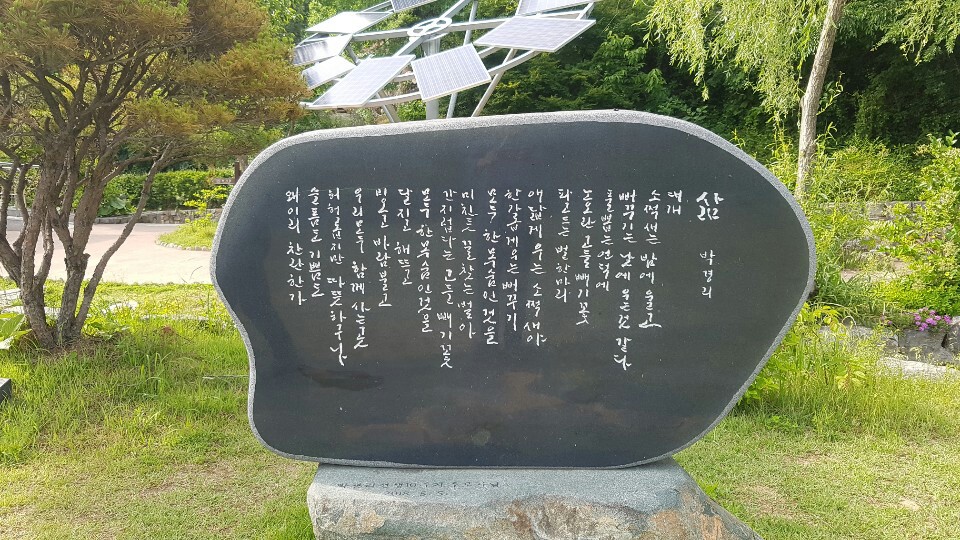 삶
박경리
대개
소쩍새는 밤에 울고
뻐꾸기는 낮에 우는것 같다
풀 뽑는 언덕에
노오란 고들빼기꽃
파고드는 벌 한마리
애닯게 우는 소쩍새야
한가롭게 우는 뻐꾸기
모두 한목숨인 것을
미친듯 꿀 찾는 벌아
간지럽다는 고들빼기꽃
모두 한목숨인것을
달지고 해뜨고
비오고 바람불고
우리 모두 함께 사는곳
허허롭지만 따뜻하구나
슬픔도 기쁨도
왜 이리 찬란한가
박경리 선생 10주기
2018. 5. 5.